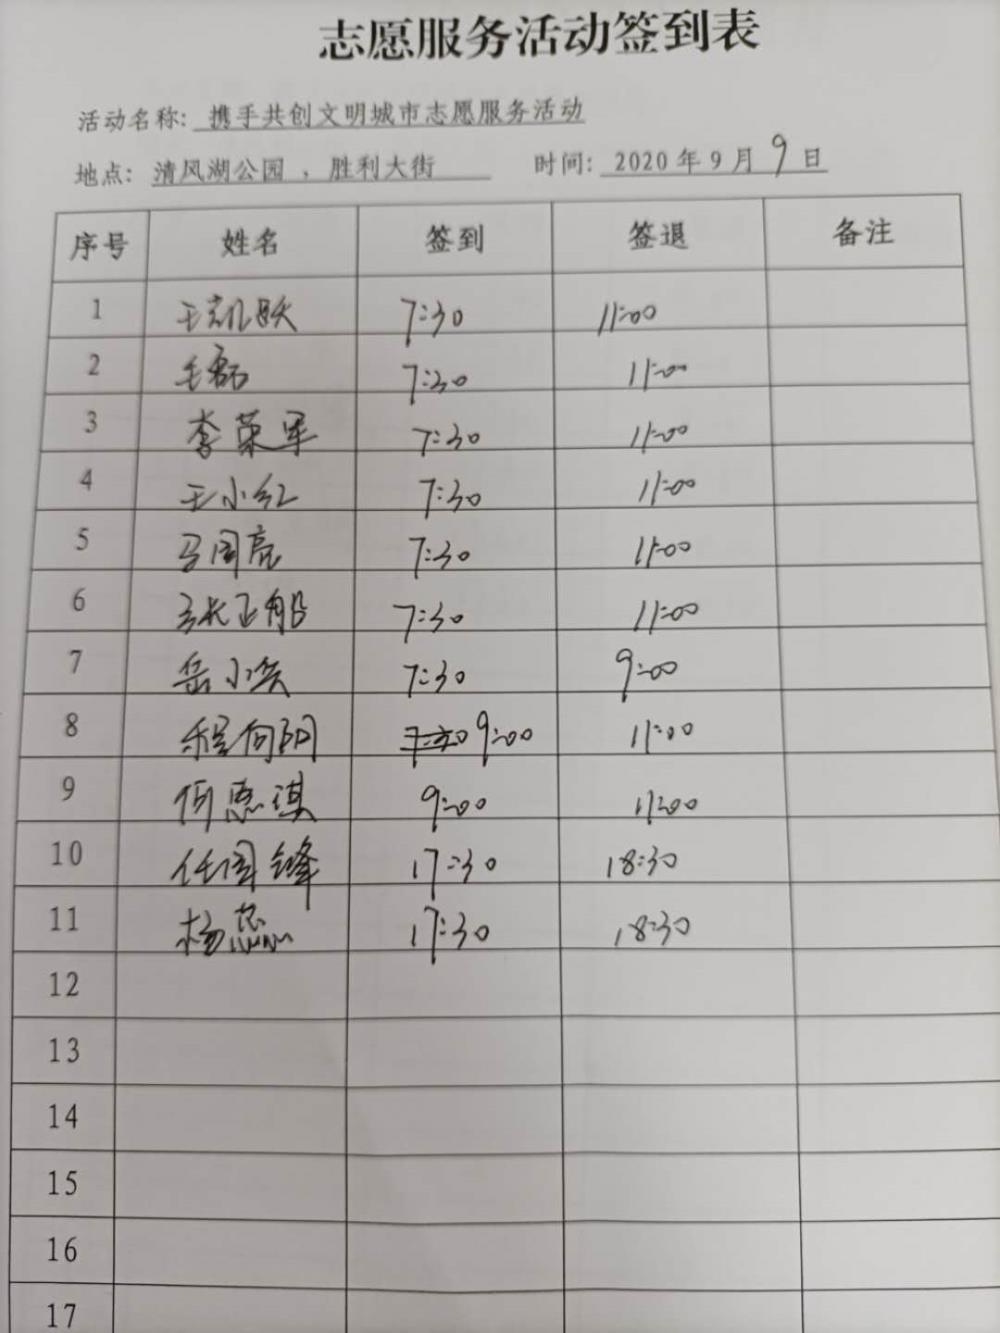 志愿服务活动签到表
活动名称: 携手共创文明城市志愿服务活动
地点: 清风湖公园 、胜利大街 时间: 2020 年 9 月 9 日
序号 姓名 签到 签退 备注
1 王凯跃 7:30 11:00
2 王磊 7:30 11:00
3 李荣军 7:30 11:00
4 王小红 7:30 11:00
5 马国亮 7:30 11:00
6 张正船 7:30 11:00
7 岳小滨 7:30 9:00
8 程向阳 7:30 9:00 11:00
9 何惠琪 9:00 11:00
10 任国锋 17:30 18:30
11 杨蕊 17:30 18:30
12
13
14
15
16
17